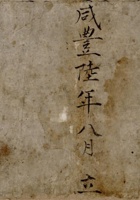 咸豐陸年八月 立